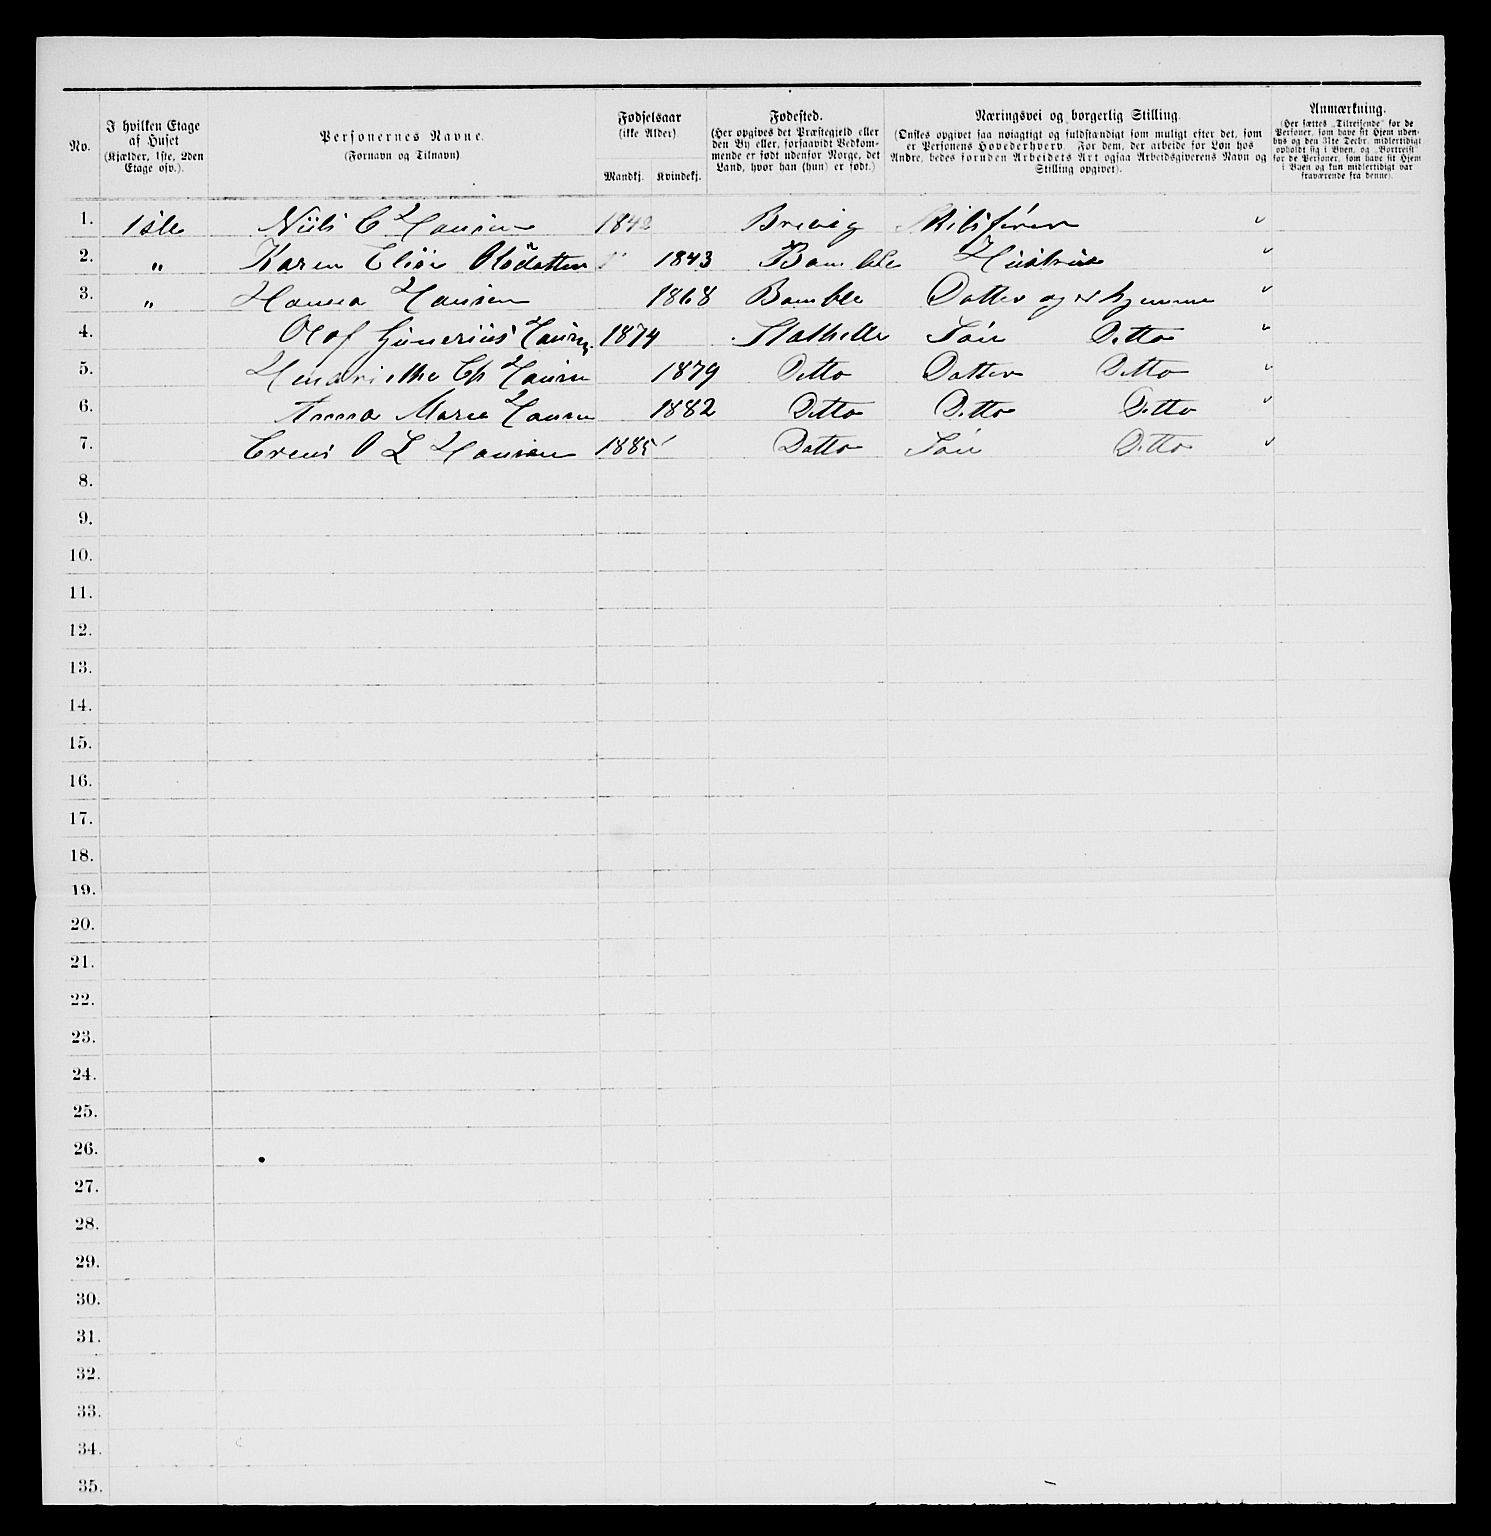 No.
I hvilken Etage af Huset (Kjælder, 1ste, 2den Etage osv.).
Personernes Navne. (Fornavn og Tilnavn)
Fødselsaar (ikke Alder). Mandkj. Kvindekj.
Fødested. (Her opgives det Præstegjeld eller den By eller, forsaavidt Vedkommende er født udenfor Norge, det Land, hvor han (hun) er født.)
Næringsvei og borgerlig Stilling. (Ønskes opgivet saa nøiagtigt og fuldstændigt som muligt efter det, som er Personens Hovederhverv. For dem, der arbeide for Løn hos Andre, bedes foruden Arbeidets Art ogsaa Arbeidsgiverens Navn og Stilling opgivet).
Anmærkning. (Her sættes „Tilreisende“ for de Personer, som have sit Hjem udenbys og den 31te Decbr. midlertidigt opholdt sig i Byen, og „Bortreist“ for de Personer, som have sit Hjem i Byen og kun midlertidigt var fraværende fra denne).
1. 1ste Niils C Hansen 1842 Brevig Skibsfører "
2. " Karen Elise Olsdatter 1843 Bamble Hustrue "
3. " Hanna Hansen 1868 Bamble Datter og er hjemme "
4. Olaf Gunerius Hansen 1874 Stathelle Søn Ditto "
5. Hendriethe Ch Hansen 1879 Ditto Datter Ditto "
6. Anna Marie Hansen 1882 Ditto Ditto Ditto "
7. O L Hansen 1885 Ditto Søn Ditto "
8.
9.
10.
11.
12.
13.
14.
15.
16.
17.
18.
19.
20.
21.
22.
23.
24.
25.
26.
27.
28.
29.
30.
31.
32.
33.
34.
35.